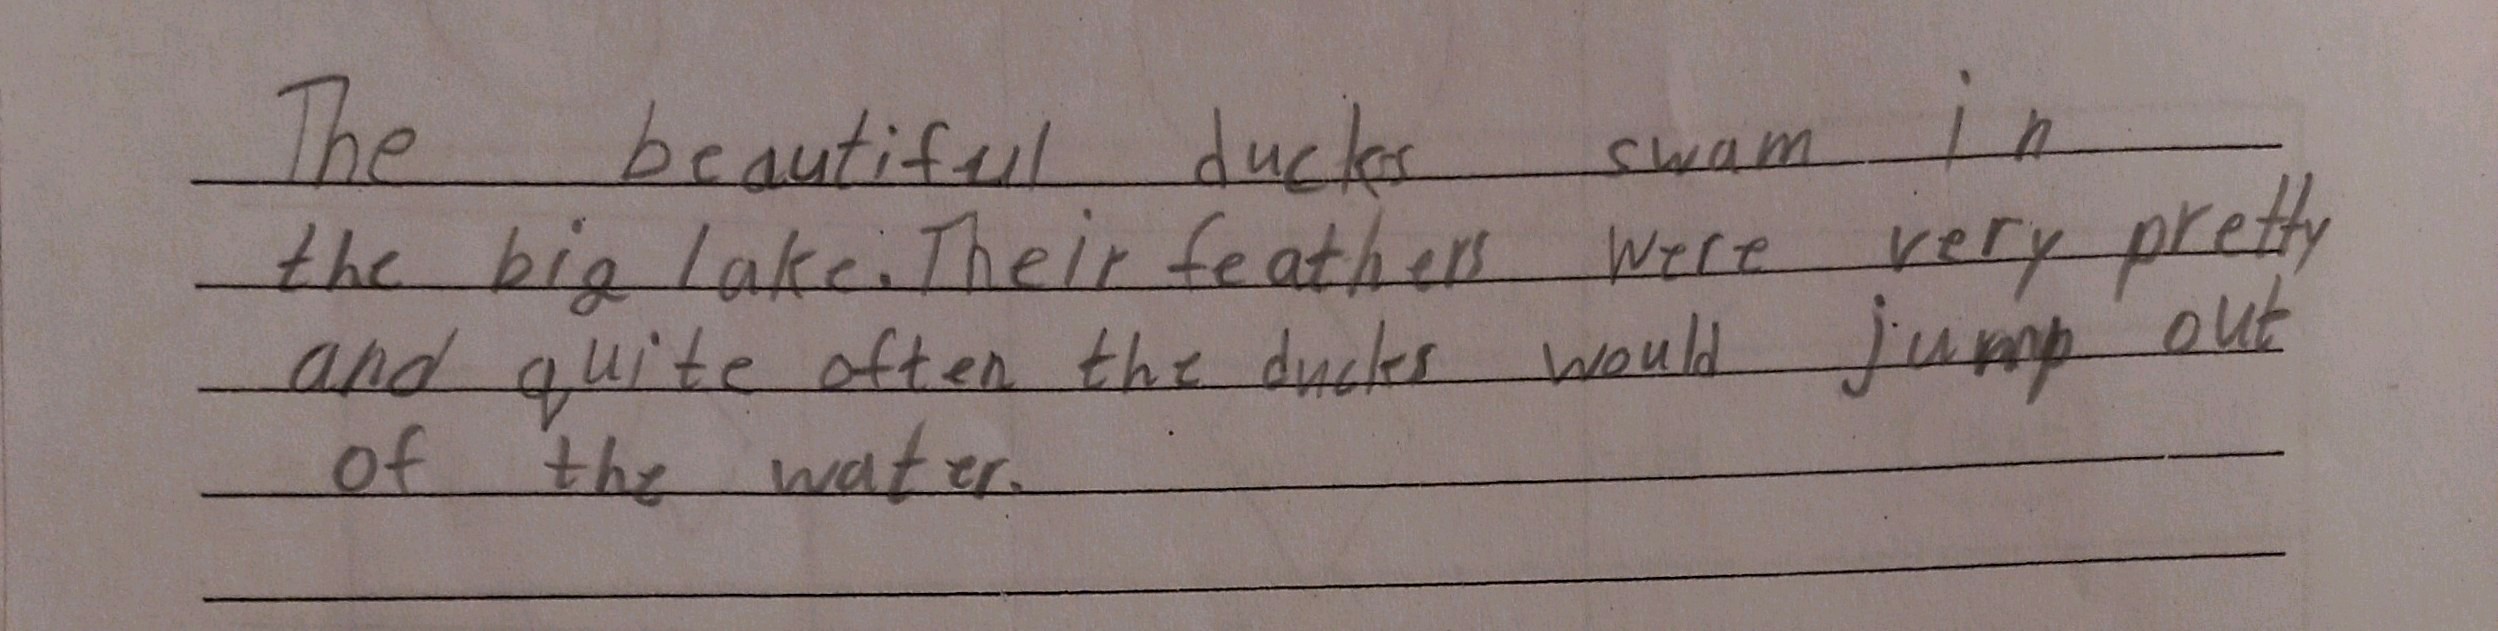 The beautiful ducks swam in
the big lake. Their feathers were very pretty
and quite often the ducks would jump out
of the water.